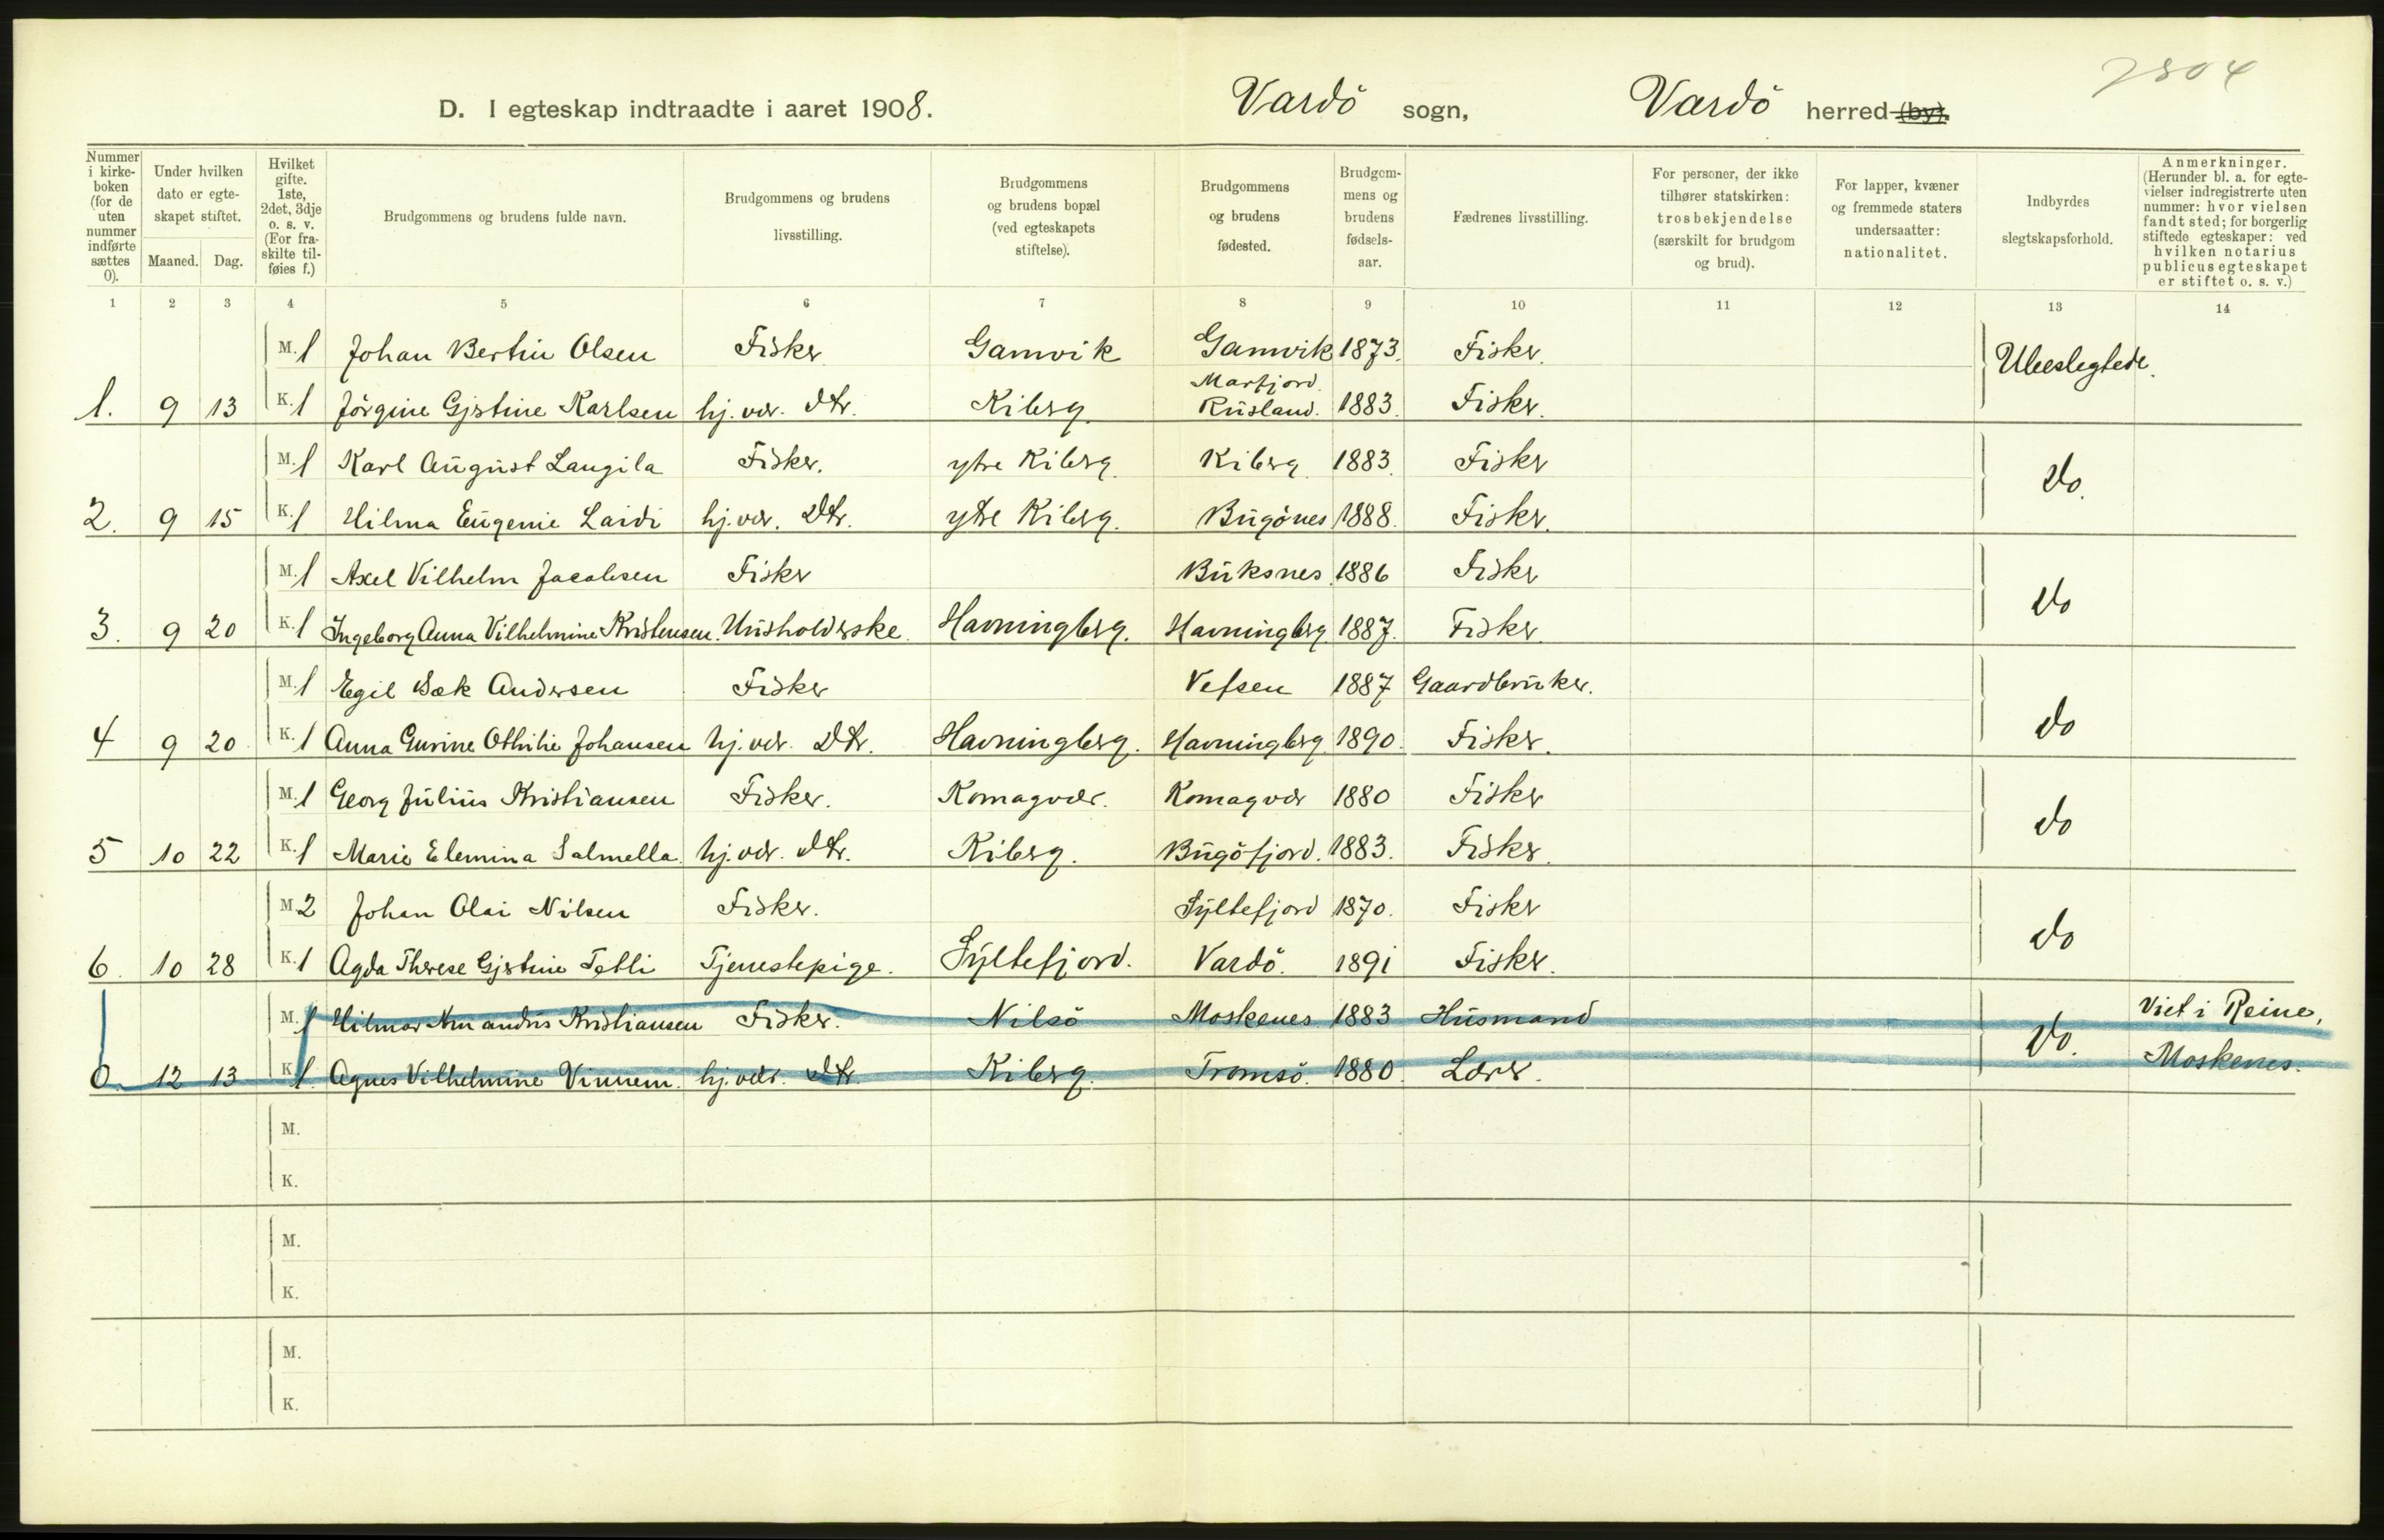 2804
D. I egteskap indtraadte i aaret 1908. Vardö sogn, Vardö herred (by).
Nummer i kirkeboken (for de uten nummer indførte sættes 0).
Under hvilken dato er egteskapet stiftet.
Maaned. Dag.
Hvilket gifte. 1ste, 2det, 3dje o. s. v. (For fraskilte tilføies f.)
Brudgommens og brudens fulde navn.
Brudgommens og brudens livsstilling.
Brudgommens og brudens bopæl (ved egteskapets stiftelse).
Brudgommens og brudens fødested.
Brudgommens og brudens fødselsaar.
Fædrenes livsstilling.
For personer, der ikke tilhører statskirken: trosbekjendelse (særskilt for brudgom og brud).
For lapper, kvæner og fremmede staters undersaatter: nationalitet.
Indbyrdes slegtskapsforhold.
Anmerkninger. (Herunder bl. a. for egtevielser indregistrerte uten nummer: hvor vielsen fandt sted; for borgerlig stiftede egteskaper: ved hvilken notarius publicus egteskapet er stiftet o. s. v.)
1 2 3 4 5 6 7 8 9 10 11 12 13 14
M. 1 Johan Bertin Olsen Fisker Gamvik Gamvik 1873. Fisker. Ubeslegtede.
1. 9 13 K. 1 Jörgine Gjstine Karlsen hj. vær. Dtr. Kiberg. Marfjord. Rusland. 1883. Fisker.
M. 1 Karl August Laugila Fisker. ytre Kiberg. Kiberg 1883. Fisker Do.
2. 9 15 K. 1 Hilma Eugenie Laidi hj. vær. Dtr. ytre Kiberg. Bugönes 1888. Fisker.
M. 1 Axel Vilhelm Jacobsen Fisker Buksnes 1886 Fisker Do
3. 9 20 K. 1 Ingeborg Anna Vilhelmine Kristensen. Husholderske. Havningberg. Havningberg 1887. Fisker.
M. 1 Egil Bæk Andersen Fisker Vefsen 1887 Gaardbruker. Do
4 9 20 K. 1 Anna Gurine Othilie Johansen hj. vær. Dtr. Havningberg. Havningberg 1890. Fisker.
M. 1 Georg Julius Kristiansen Fisker. Komagvær. Komagvær 1880 Fisker Do
5 10 22 K. 1 Marie Elemina Salmella. hj. vær. Dtr. Kiberg. Bugöfjord. 1883. Fisker.
M. 2 Johan Olai Nilsen Fisker. Syltefjord 1870. Fisker Do
6. 10 28 K. 1 Agda Therese Gjstine Tetli Tjenestepige. Syltefjord. Vardö. 1891 Fisker.
M. 1 Hilmar Amandus Kristiansen Fisker. Nilsö Moskenes 1883 Husmand Do. Viet i Reine,
0. 12 13 K. 1. Agnes Vilhelmine Vinnem. hj. vær. Dtr. Kiberg. Tromsö. 1880. Lærer. Moskenes.
M.
K.
M.
K.
M.
K.